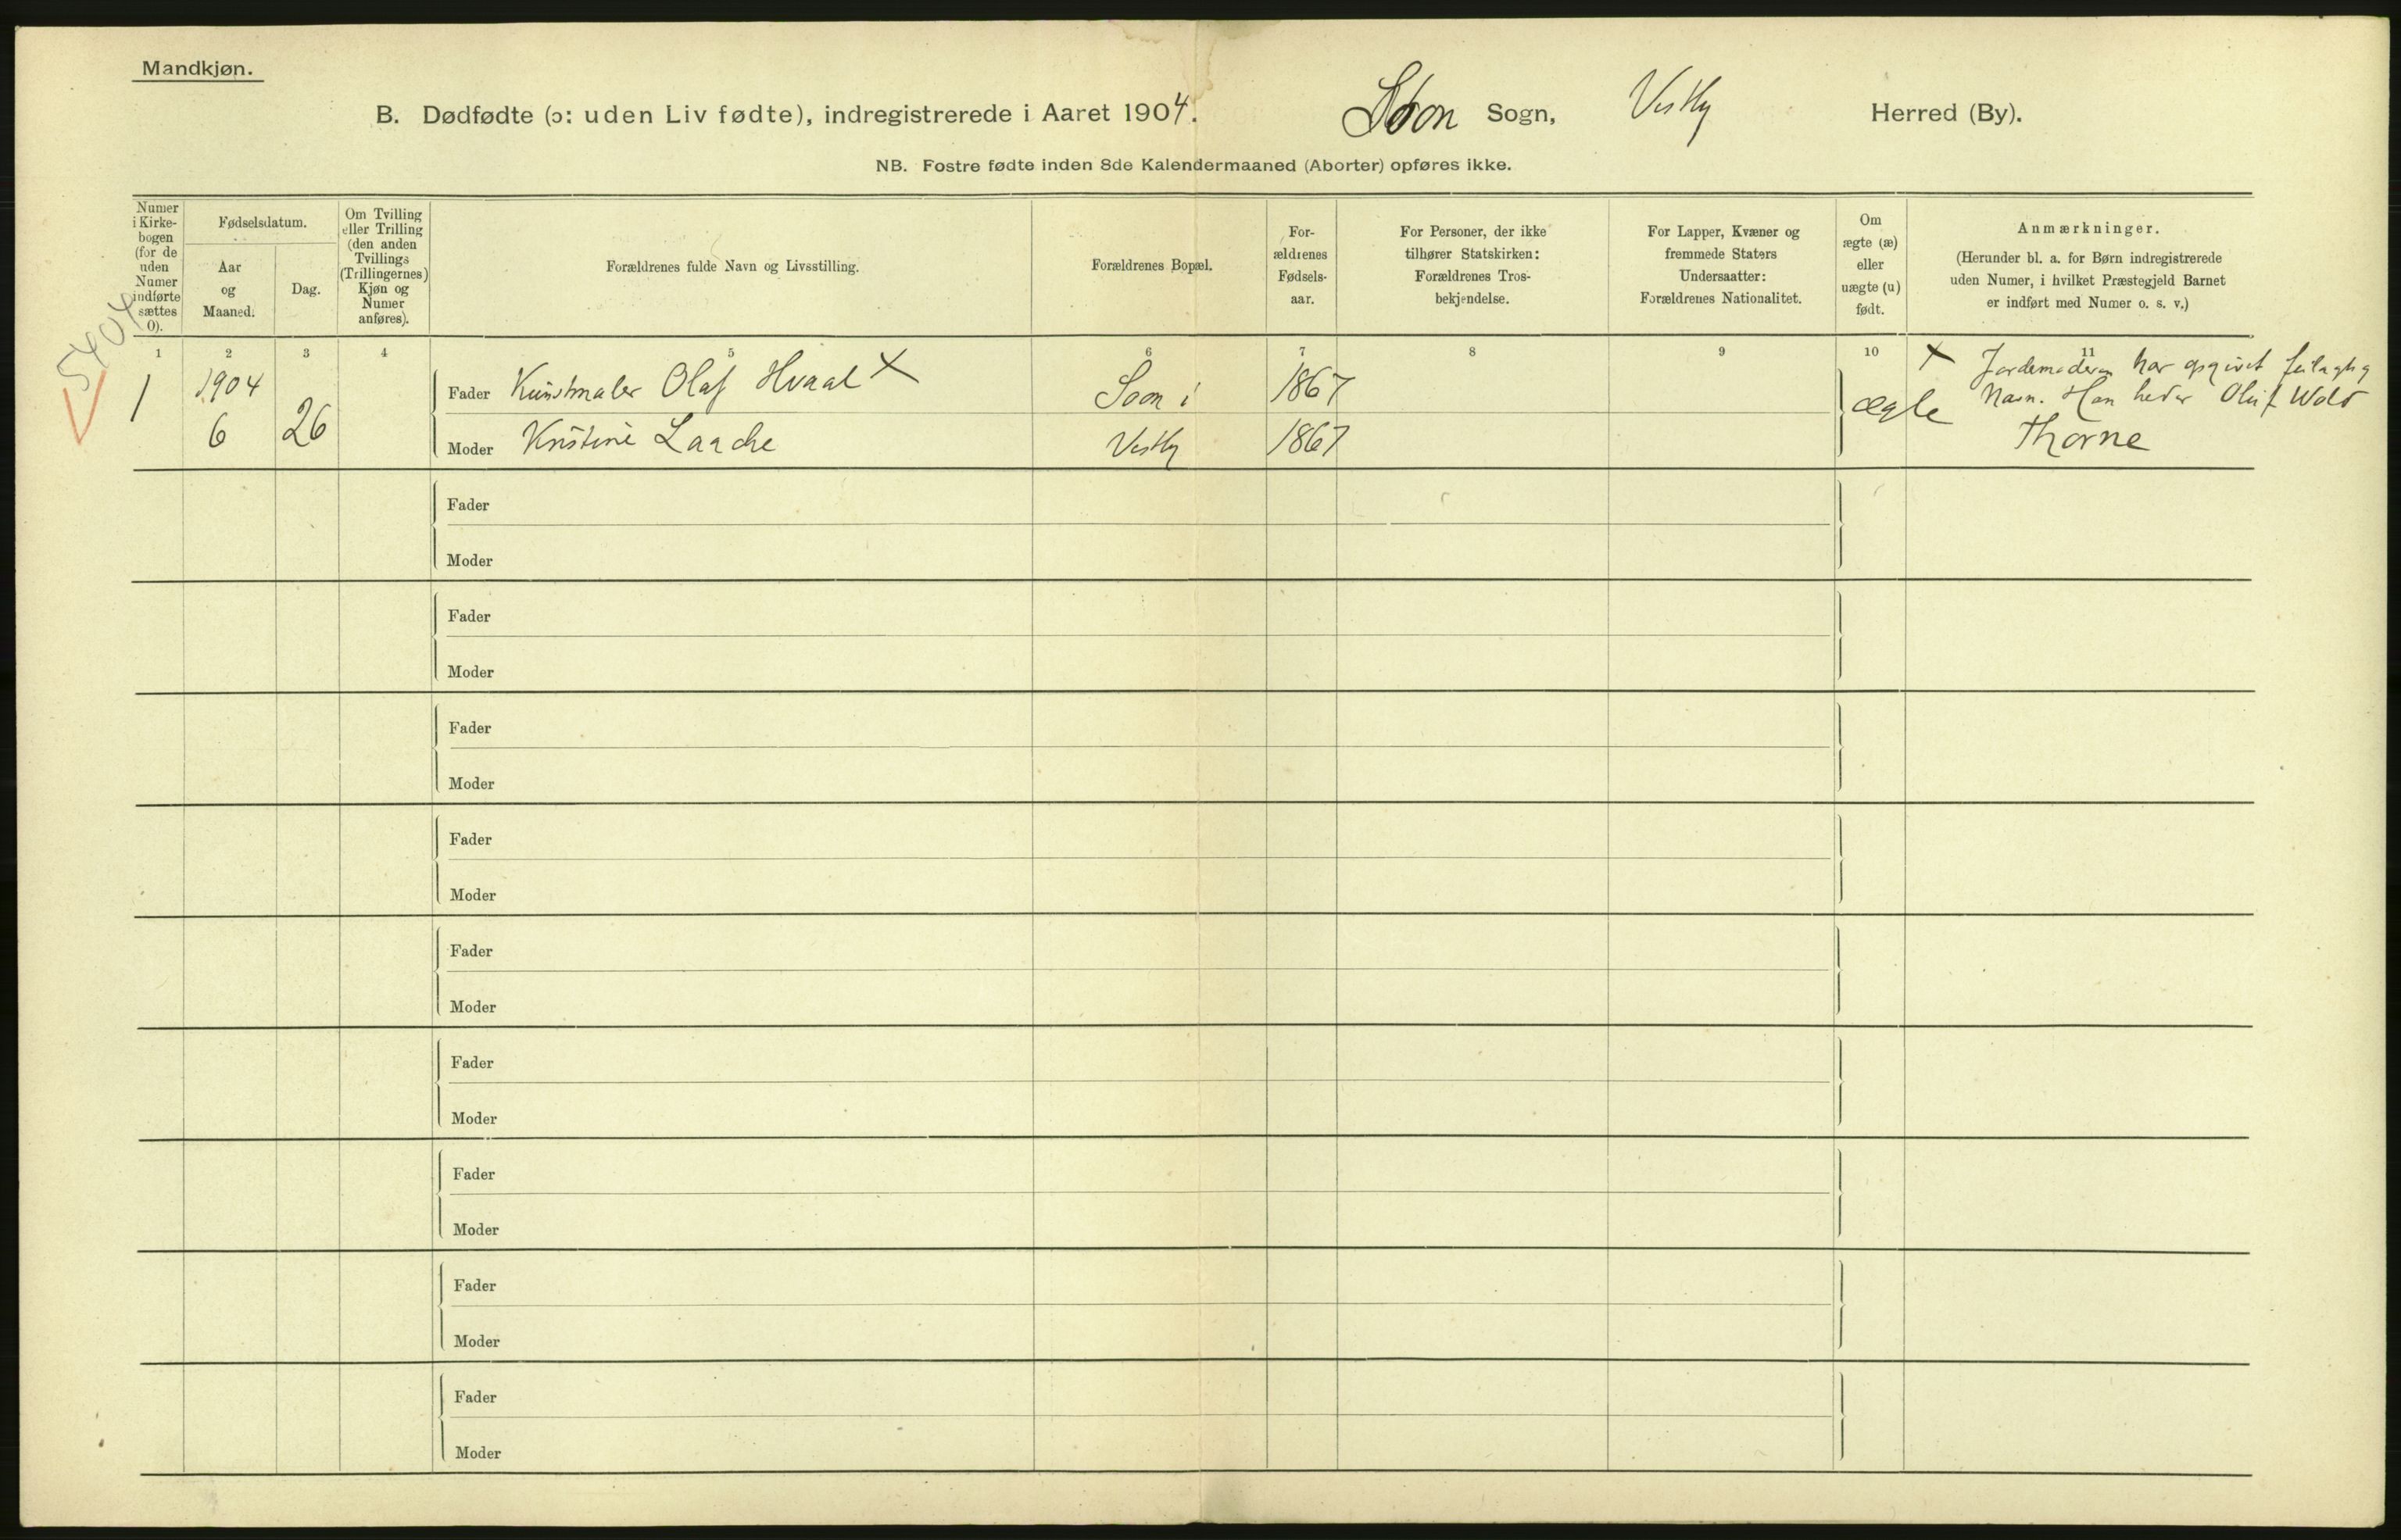 Mandkjøn.
B. Dødfødte (ɔ: uden Liv fødte), indregistrerede i Aaret 1904. Soon Sogn, Vestby Herred (By).
NB. Fostre fødte inden 8de Kalendermaaned (Aborter) opføres ikke.
Numer
i Kirke-
bogen
(for de
uden
Numer
indførte
sættes
0).
Fødselsdatum.
Aar
og
Maaned.
Dag.
Om Tvilling
eller Trilling
(den anden
Tvillings
(Trillingernes)
Kjøn og
Numer
anføres).
Forældrenes fulde Navn og Livsstilling.
Forældrenes Bopæl.
For-
ældrenes
Fødsels-
aar.
For Personer, der ikke
tilhører Statskirken:
Forældrenes Tros-
bekjendelse.
For Lapper, Kvæner og
fremmede Staters
Undersaatter:
Forældrenes Nationalitet.
Om
ægte (æ)
eller
uægte (u)
født.
Anmærkninger.
(Herunder bl. a. for Børn indregistrerede
uden Numer, i hvilket Præstegjeld Barnet
er indført med Numer o. s. v.)
5404
1 2 3 4 5 6 7 8 9 10 11
1 1904 Fader Kunstmaler Olaf Hvaal X Soon i 1867 ægte X Jordemoderen har opgivet feilagtig
6 26 Moder Kristine Laache Vestby 1867 Navn. Han heder Oluf Wold
Thorne
Fader
Moder
Fader
Moder
Fader
Moder
Fader
Moder
Fader
Moder
Fader
Moder
Fader
Moder
Fader
Moder
Fader
Moder